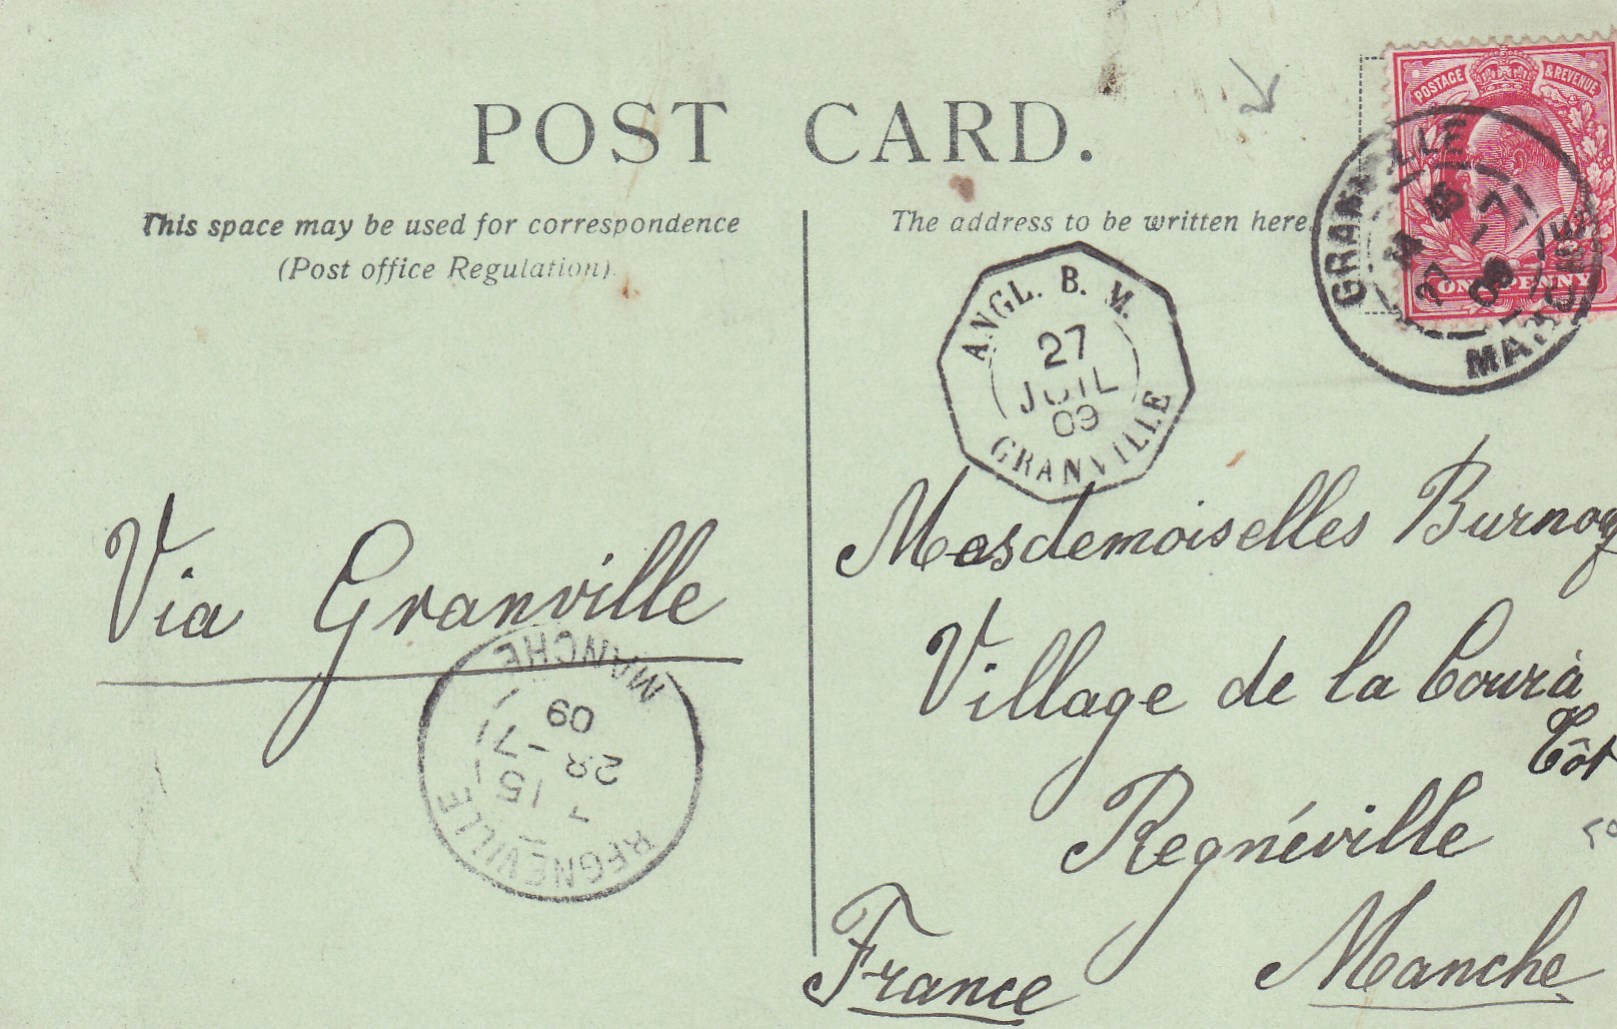 POST CARD.
This space may be used for correspondence
(Post office Regulation).
The address to be written here.
POSTAGE & REVENUE
ONE PENNY
GRANVILLE
27 -7
09
MANCHE
ANGL. B. M.
27
JUIL
09
GRANVILLE
Via Granville
MANCHE
09
28 -7
15
REGNEVILLE
Mesdemoiselles
Village de la
Côt
Regnéville
Manche
France